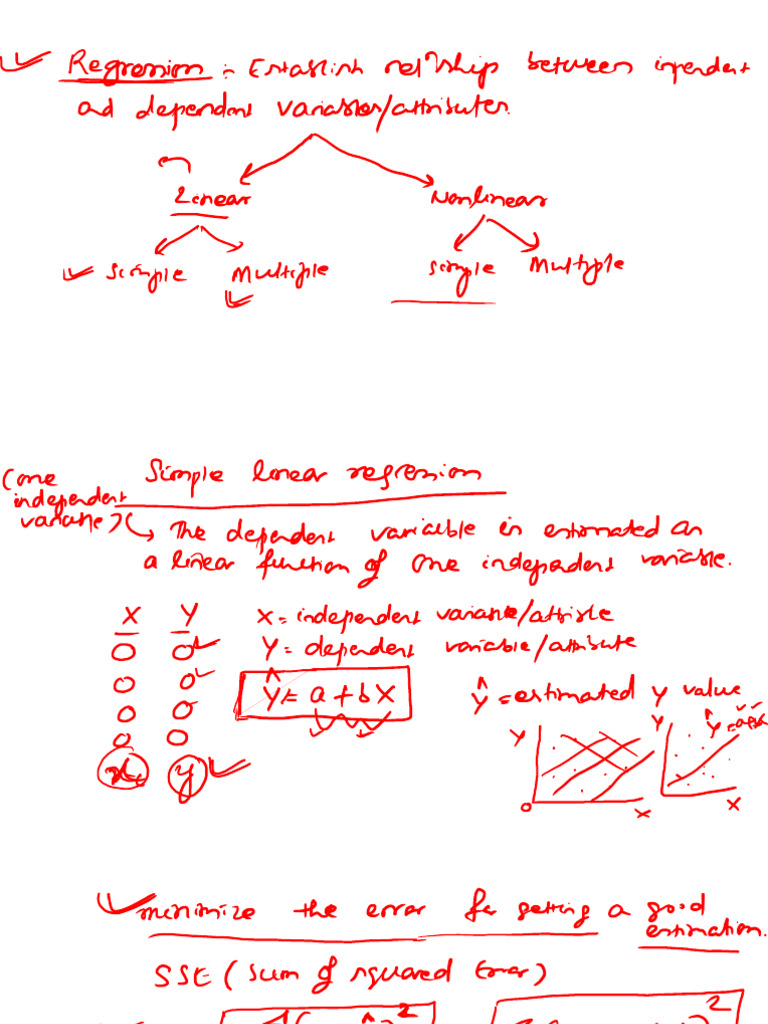 Regression :- Establish rel^nship between inpendent
and dependent variables/attributes.
Linear Nonlinear
Simple Multiple Simple Multiple
Simple linear regression
(one
independent
variable)
The dependent variable is estimated as
a linear function of one independent variable.
X Y X = independent variable/attribute
0 0 Y = dependent variable/attribute
0 0 Ŷ = a + bX Ŷ = estimated y value
0 0 Y Y Ŷ =
0 0
x y
0 X X
minimize the error for getting a good
estimation.
SSE (Sum of squared Error)
2 2